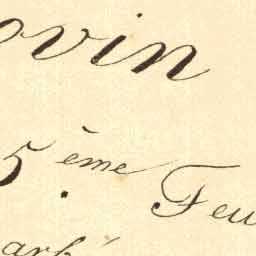 ovin
5.ème Feu
arbé